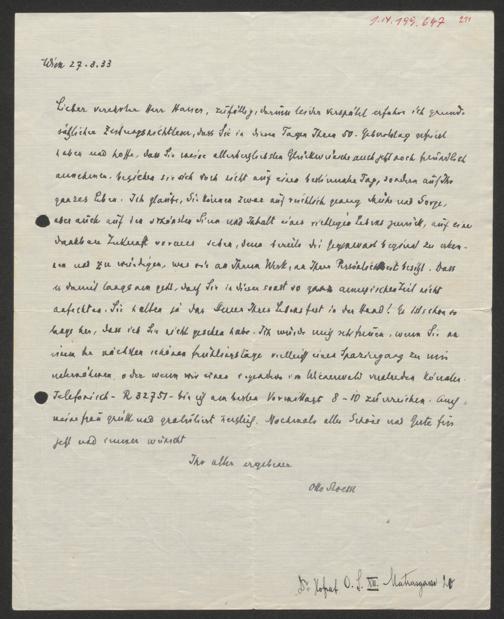 I.N. 199.647 211
Wien 27.3.33
Lieber verehrter Herr Hauser, zufällig, darum leider verspätet erfahre ich grund-
sätzlicher Zeitungsnichtleser, dass Sie in diesen Tagen Ihren 50. Geburtstag gefeiert
haben und hoffe, dass Sie meine allerherzlichsten Glückwünsche auch jetzt noch freundlich
annehmen. beziehen sie sich doch nicht auf einen bestimmten Tag, sondern auf Ihr
ganzes Leben. Ich glaube, Sie können zwar auf reichlich genug Mühe und Sorge,
aber auch auf den schönsten Sinn und Inhalt eines richtigen Lebens zurück, auf eine
dankbare Zukunft voraus sehen, denn bereits die Gegenwart beginnt zu erken-
nen und zu würdigen, was sie an Ihrem Werk, an Ihrer Persönlichkeit besitzt. Dass
es damit langsam geht, darf Sie in dieser sonst so ganz amusischen Zeit nicht
anfechten. Sie halten ja das Steuer Ihres Lebens fest in der Hand! Es ist schon so
lange her, dass ich Sie nicht gesehen habe. Ich würde mich sehr freuen, wenn Sie an
einem der nächsten schönen Frühlingstage vielleicht einen Spaziergang zu mir
unternähmen, oder wenn wir einen irgendwo im Wienerwald verabreden könnten.
Telefonisch - R 32751 - bin ich am besten Vormittags 8 - 10 zu erreichen. Auch
meine Frau grüßt und gratuliert herzlich. Nochmals alles Schöne und Gute für
jetzt und immer wünscht
Ihr aller ergebener
Otto Stoessl
Dr Hofrat O. S. XII. Matrasgasse 20